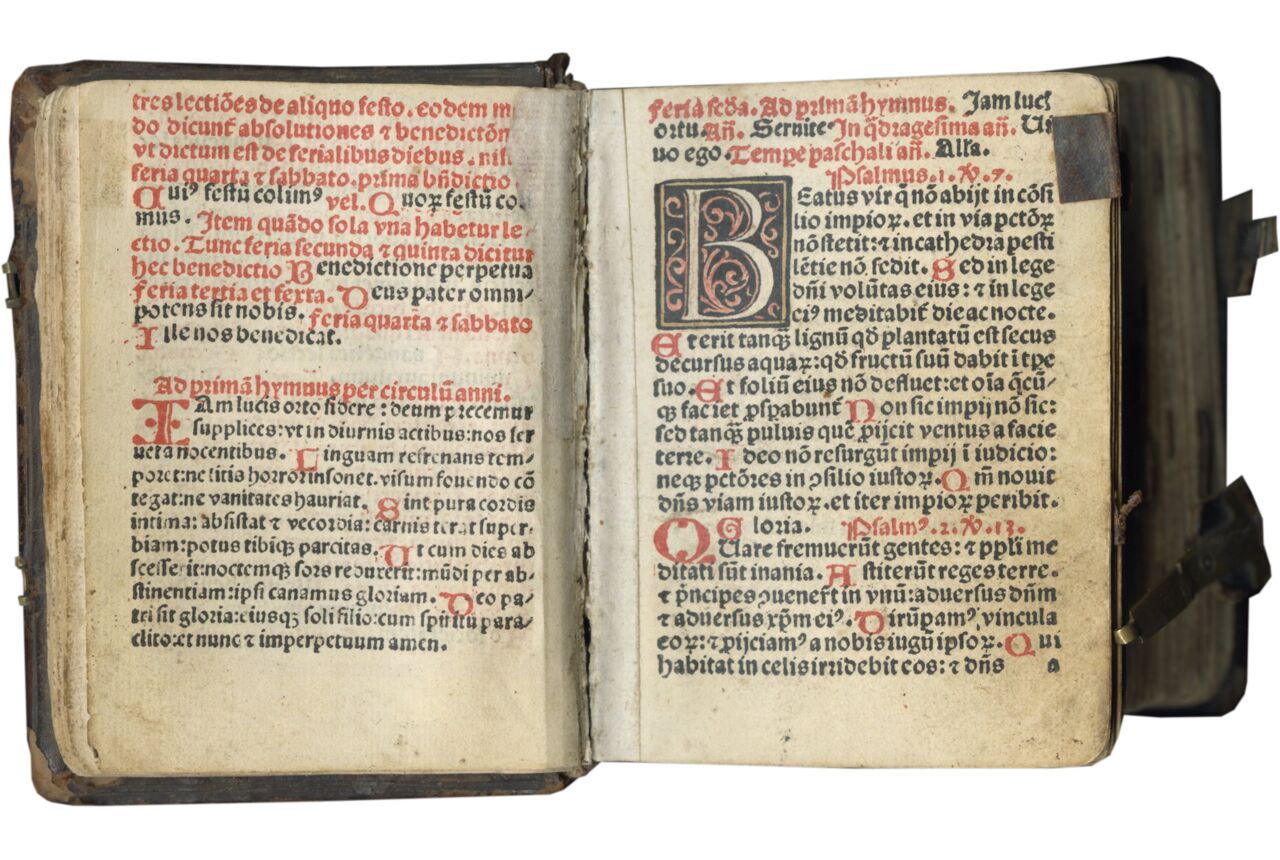 tres lectiões de aliquo festo. eodem m
do dicunt̄ absolutiones ⁊ benedictōn
vt dictum est de ferialibus diebus. nisi
feria quarta ⁊ sabbato. prima bn̄dictio
Cuiꝰ festū colimꝰ vel. Quoꝝ festū co
mus. Item quādo sola vna habetur le⸗
ctio. Tunc feria secunda ⁊ quinta dicitur
hec benedictio Benedictione perpetua
feria tertia et sexta. Deus pater omni⸗
potens sit nobis. feria quarta ⁊ sabbato
Ille nos benedicat.
Ad primā hymnus per circulū anni.
IAm lucis orto sidere: deum precemur
supplices: vt in diurnis actibus: nos ser
uet a nocentibus. Linguam refrenans tem⸗
poret: ne litis horror insonet. visum fouendo cō
tegat: ne vanitates hauriat. Sint pura cordis
intima: absistat ⁊ vecordia: carnis terat super⸗
biam: potus cibiqꝫ parcitas. Ut cum dies ab
scesserit: noctemqꝫ sors reduxerit: mūdi per ab⸗
stinentiam: ipsi canamus gloriam. Deo pa⸗
tri sit gloria: eiusqꝫ soli filio: cum spiritu para⸗
clito: et nunc ⁊ imperpetuum amen.
feria secd̄a. Ad primā hymnus. Jam lucꝭ
ortu. Añ. Seruiteˢ In q̄dragesima añ. Ui
uo ego. Tempe paschali añ. Alla.
Psalmus. 1. ℣. 7.
BEatus vir q̄ nō abijt in cōsi
lio impioꝝ. et in via pctōꝝ
nō stetit: ⁊ in cathedra pesti
lētie nō sedit. Sed in lege
dn̄i volūtas eius: ⁊ in lege
eiꝰ meditabit̄ die ac nocte.
Et erit tanqꝫ lignū qd̄ plantatū est secus
decursus aquaꝝ: qd̄ fructū suū dabit ī tpe
suo. Et foliū eius nō defluet: et oīa q̄cū⸗
qꝫ faciet ꝓsꝑabunt̄ Non sic impij nō sic:
sed tanqꝫ puluis quē ꝓijcit ventus a facie
terre. Ideo nō resurgūt impij ī iudicio:
neqꝫ pctōres in ꝯsilio iustoꝝ. Qm̄ nouit
dn̄s viam iustoꝝ. et iter impioꝝ peribit.
Gloria. Psalmꝰ. 2. ℣. 13.
QUare fremuerūt gentes: ⁊ ppl̄i me
ditati sūt inania. Astiterūt reges terre.
⁊ pn̄cipes ꝯuenerūt in vnū: aduersus dn̄m
⁊ aduersus xp̄m eiꝰ. Dirūpamꝰ vincula
eoꝝ: ⁊ ꝓijciamꝰ a nobis iugū ipsoꝝ. Qui
habitat in celis irridebit eos: ⁊ dn̄s a